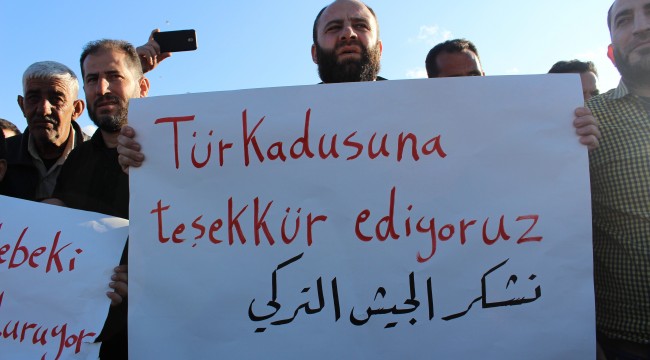 TürKadusuna
teşekkür ediyoruz
نشكر الجيش التركي
ebeki
uruyor